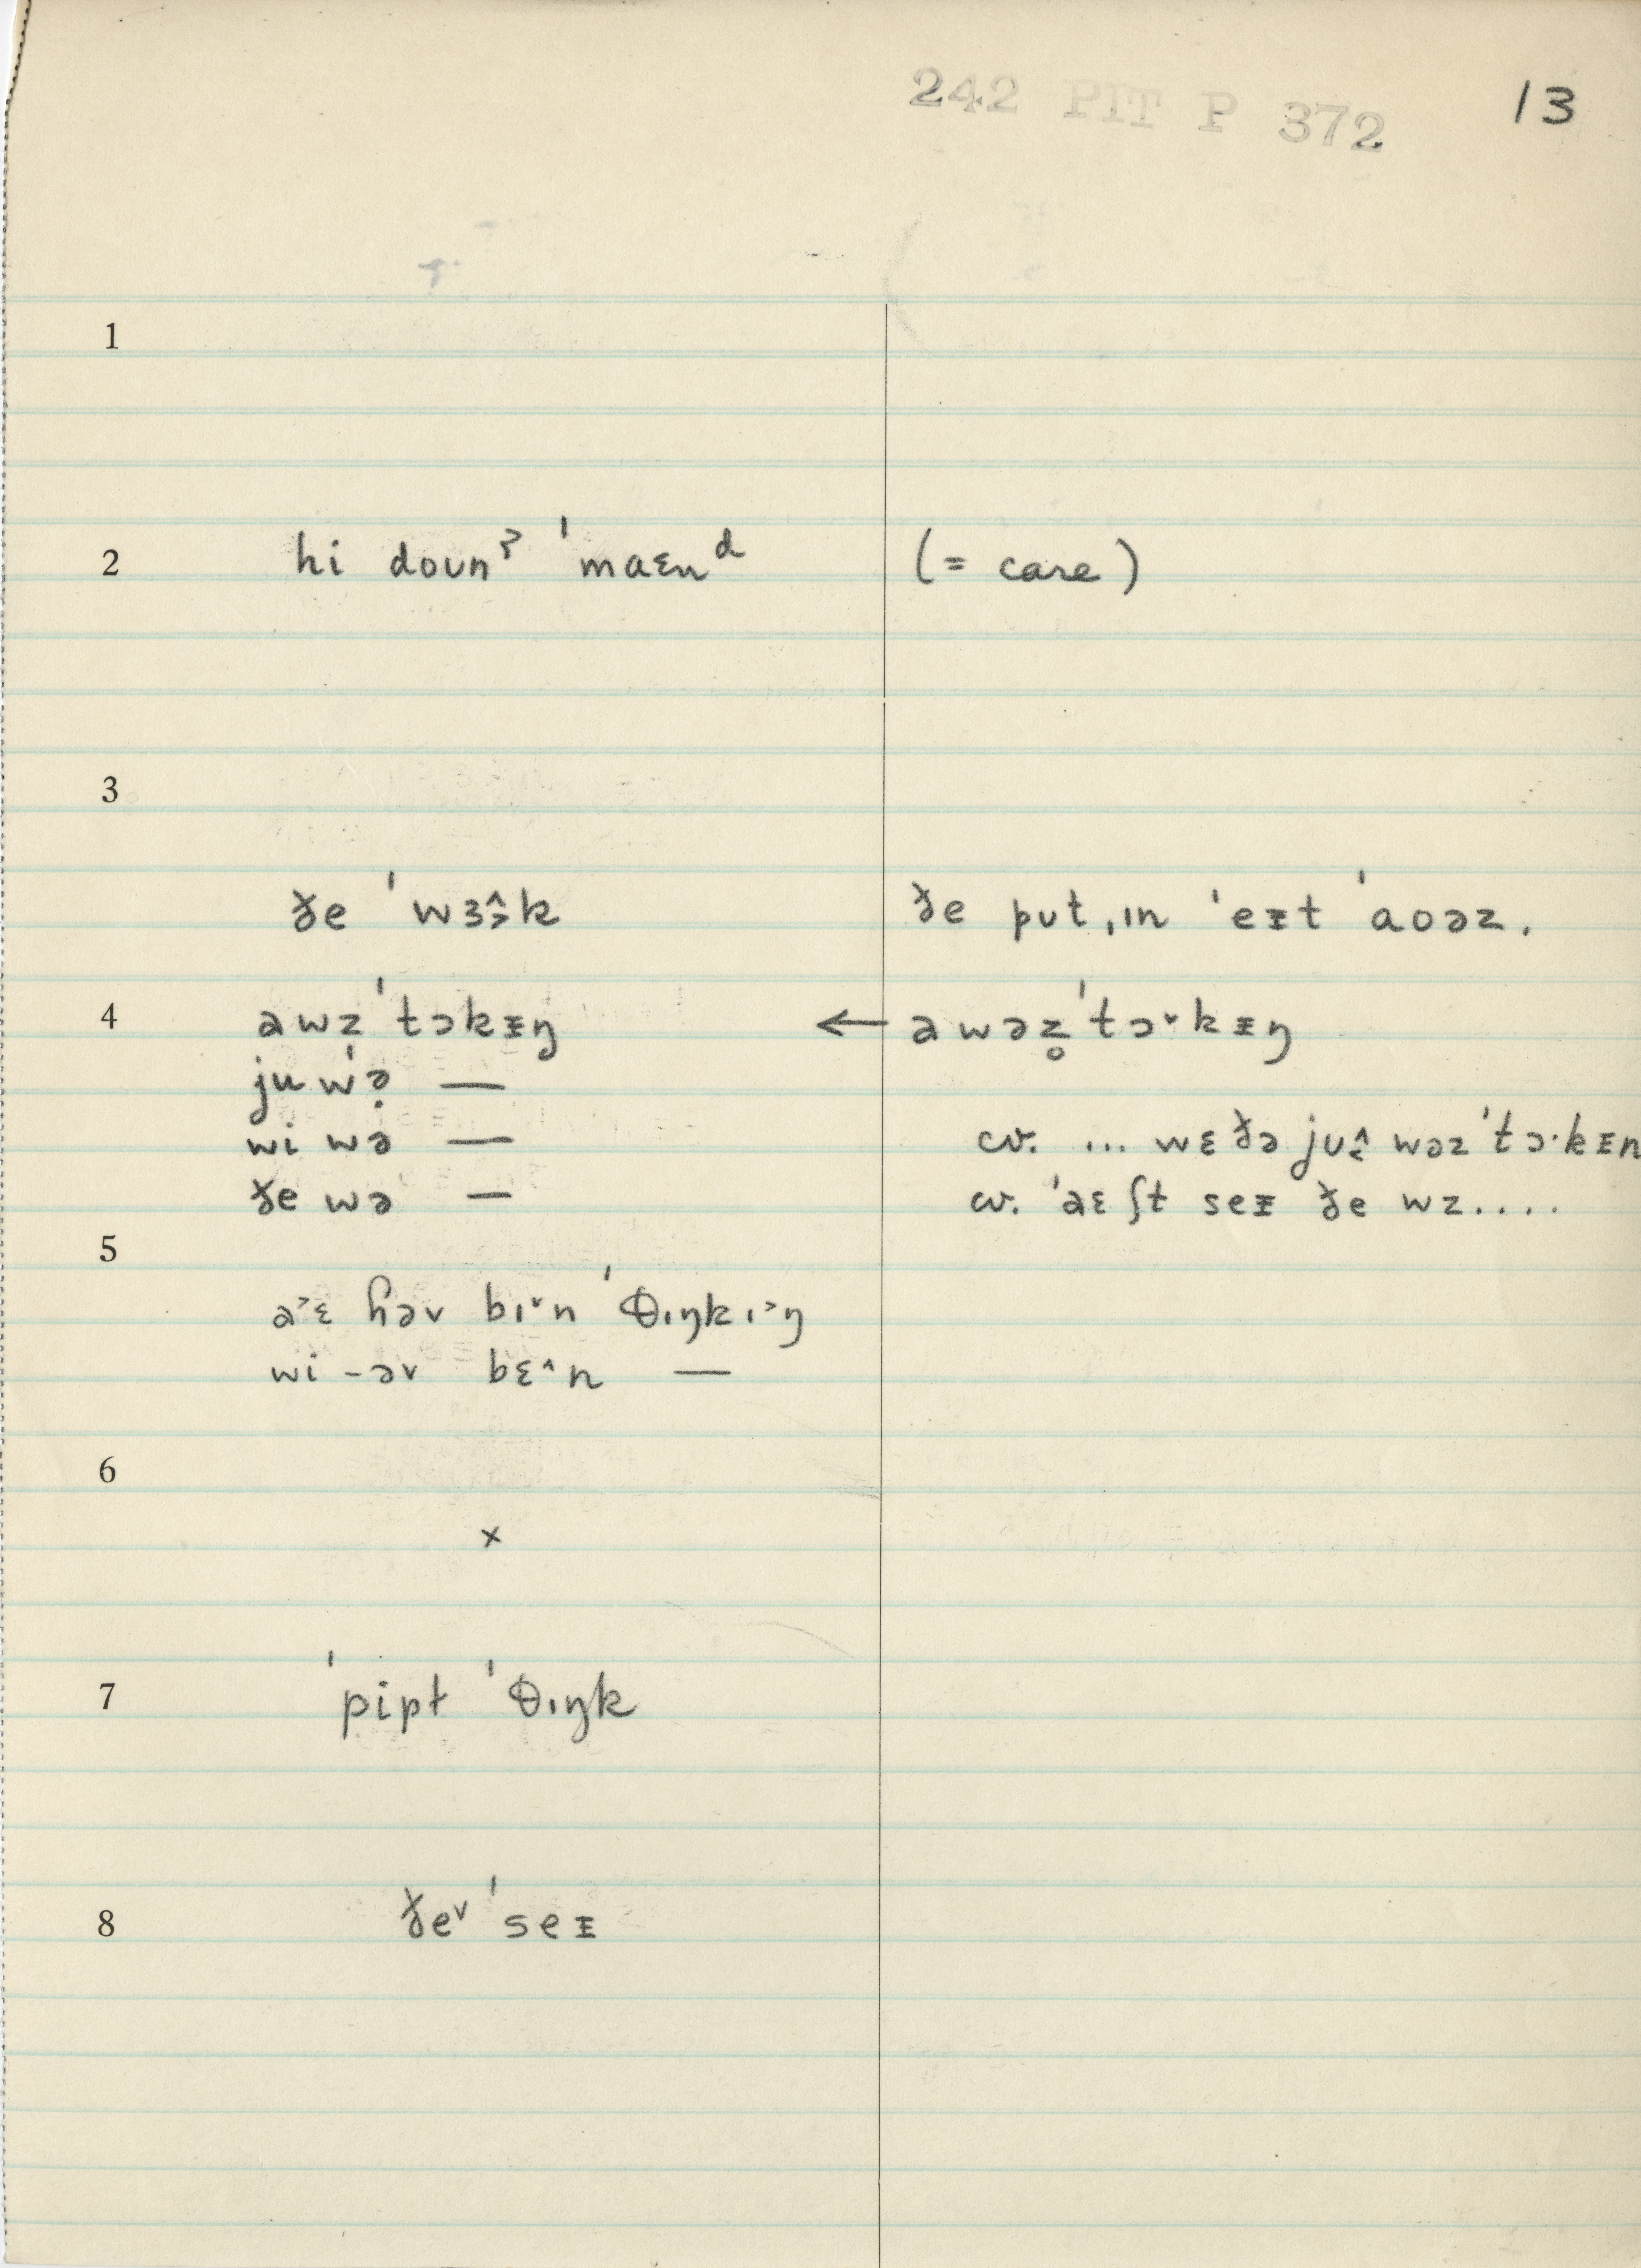 242 PIT P 372 13
1
2 hi doun ˀ ˈmaɛn ᵈ (= care)
3
ðe ˈwɜɚ̂k ðe put ˌɪn ˈeᵻt ˈaoəz.
4 əwz̩ ˈtɔkᵻŋ ← əwəz̥ ˈtɔ˅kᵻŋ
ju wə̣ —
wi wə — cv. ... wɛðə jʊ̂ wəz ˈtɔ·kᵻn
ðe wə — cv. ˈəɛ ʃt seᵻ ðe wz....
5
ə˃ɛ ɦəv bɪ˅n ˈθɪŋkɪ˃ŋ
wi -əv bɛ^n —
6
x
7 ˈpipɫ ˈθɪŋk
8 ðe˅ ˈseᵻ